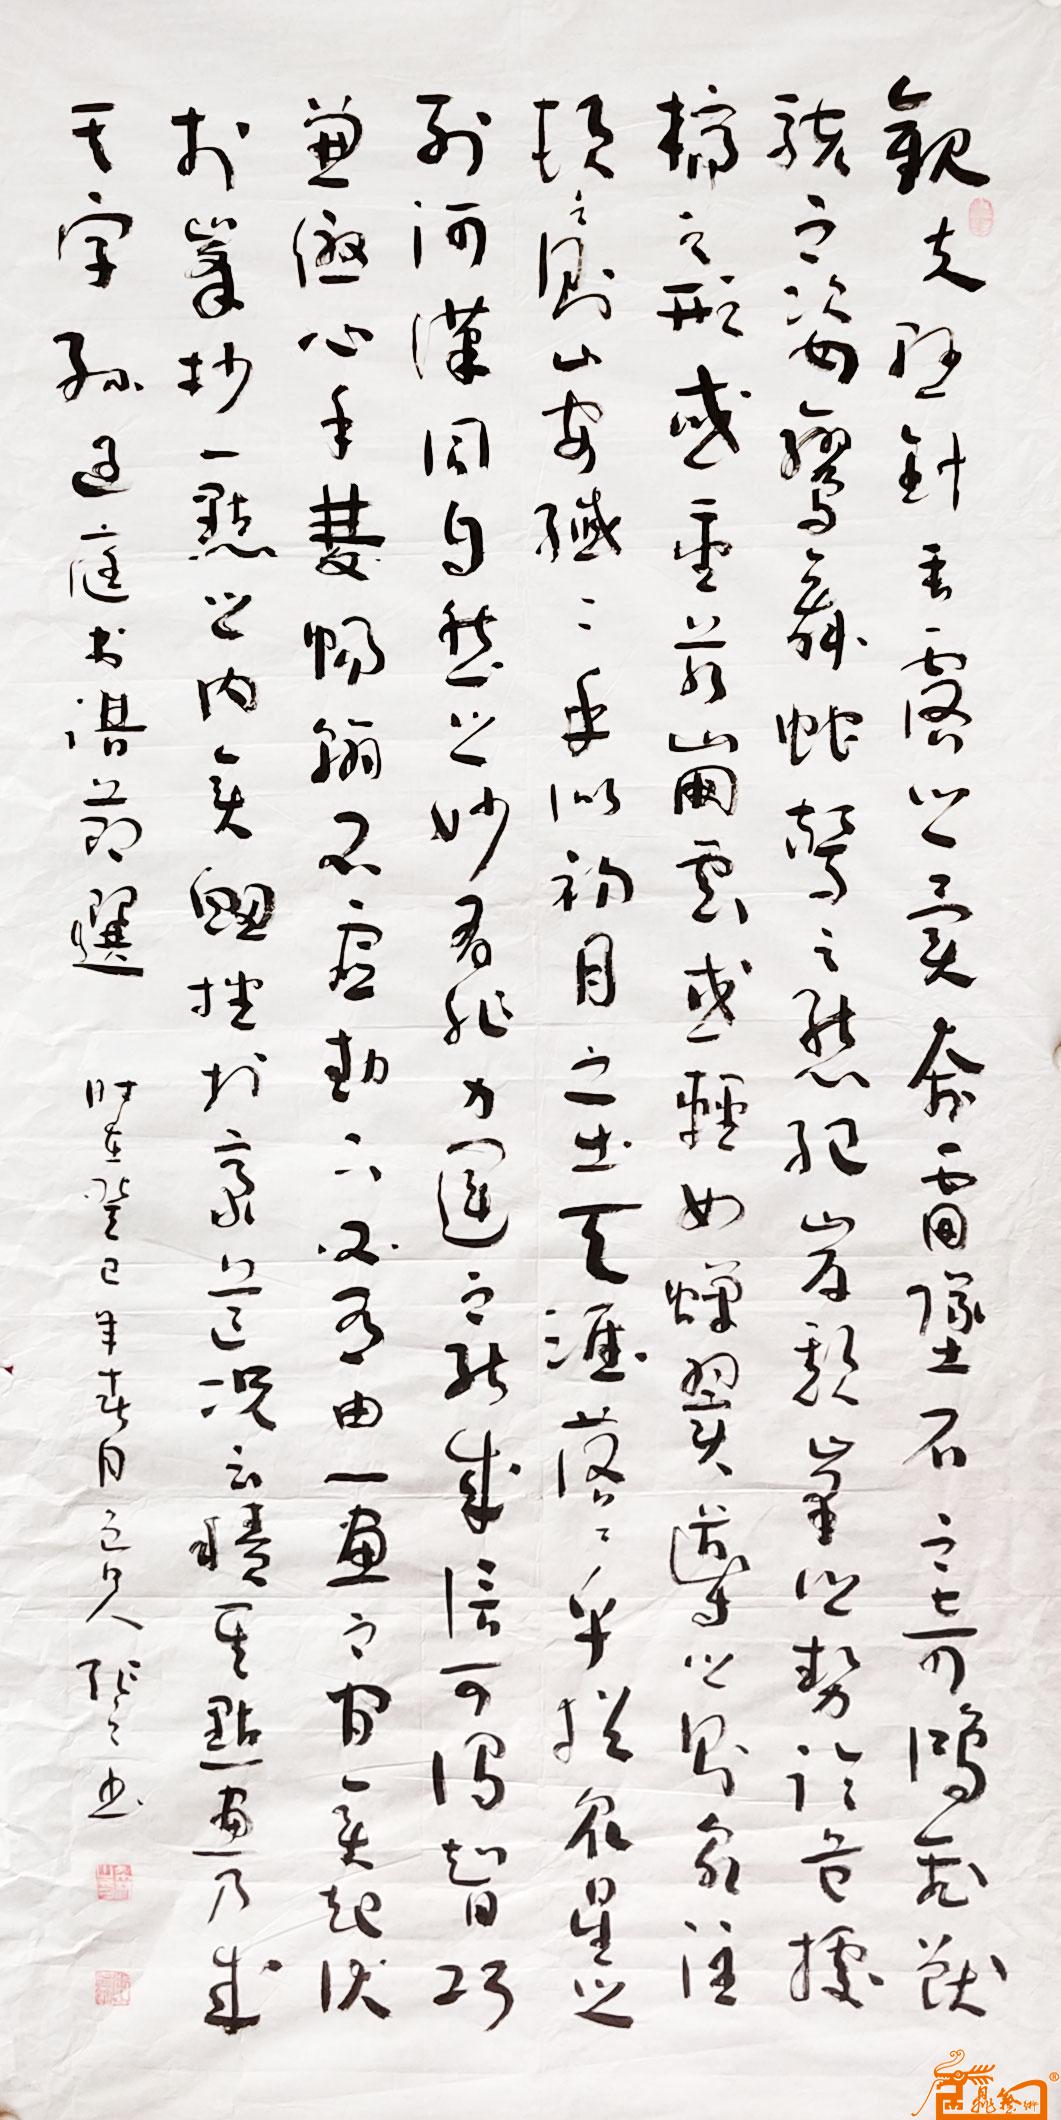 觀夫懸針垂露之異奔雷墜石之奇鴻飛獸
駭之姿鸞舞蛇驚之態絕岸頹峯之勢臨危據
槁之形或重若崩雲或輕如蟬翼導之則泉注
頓之則山安纖纖乎似初月之出天涯落落乎猶眾星之
列河漢同自然之妙有非力運之能成信可謂智巧
兼優心手雙暢翰不虛動下必有由一畫之間變起伏
於峯杪一點之內異衄挫於豪芒況云積其點畫乃成
其字 孫過庭书譜節選 时在癸巳年春月